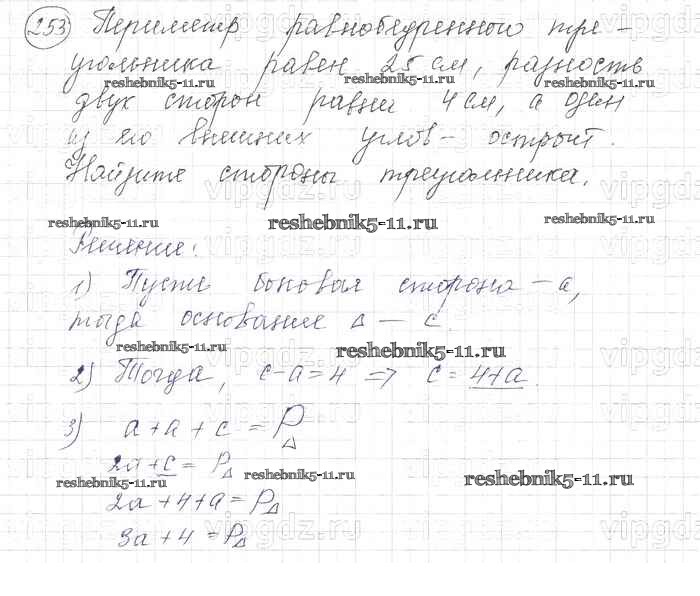 253 Периметр равнобедренного тре-
угольника равен 25 см, разность
reshebnik5-11.ru reshebnik5-11.ru reshebnik5-11.ru
двух сторон равна 4 см, а один
из его внешних углов - острый.
Найдите стороны треугольника.
vipgdz.ru
reshebnik5-11.ru reshebnik5-11.ru reshebnik5-11.ru
Решение:
1) Пусть боковая сторона - a,
тогда основание Δ - c.
reshebnik5-11.ru reshebnik5-11.ru
2) Тогда, c-a=4 => c = 4+a.
3) a+a+c = PΔ
2a+c = PΔ
reshebnik5-11.ru reshebnik5-11.ru reshebnik5-11.ru
2a+4+a = PΔ
vipgdz.ru
3a+4 = PΔ